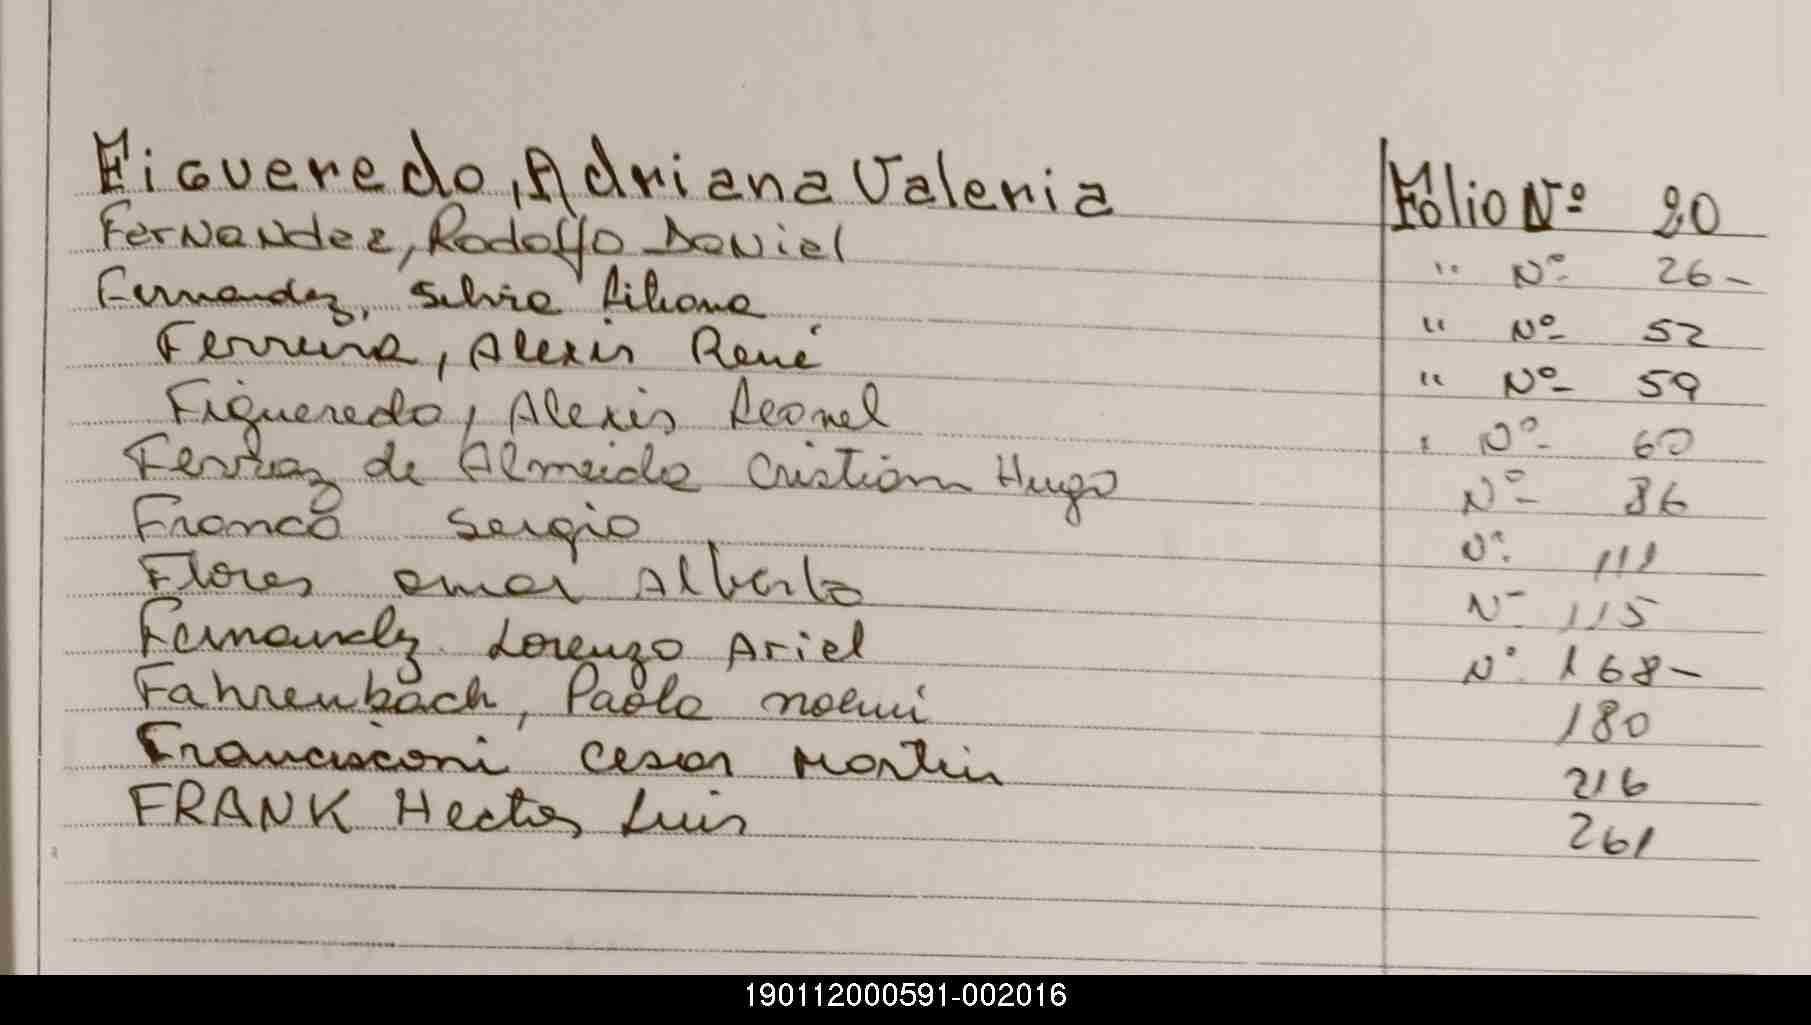 Figueredo, Adriana Valeria Folio Nº 20
Fernandez, Rodolfo Daniel " Nº 26-
Fernandez, Silvia Liliana " Nº 52
Ferreira, Alexis René " Nº 59
Figueredo, Alexis Leonel " Nº 60
Ferraz de Almeida Cristian Hugo Nº 86
Franco Sergio Nº 111
Flores Omar Alberto Nº 115
Fernandez Lorenzo Ariel Nº 168-
Fahrenbach, Paola Noemi 180
Francisconi Cesar Martin 216
FRANK Hector Luis 261
190112000591-002016